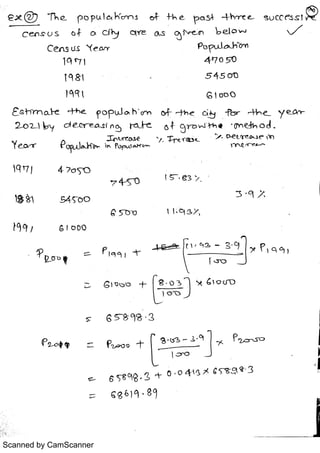 Ex 27 The populations of the past three successive
census of a city are as given below
Census Year Population
1971 47050
1981 54500
1991 61000
Estimate the population of the city for the year
2021 by decreasing rate of growth method.
Year Population Increase in Population % Increase % Decrease in increase
1971 47050
7450 15.83 %
1981 54500 3.9 %
6500 11.92%
1991 61000
= P1991 + [11.92 - 3.9 / 100] x P1991
= 61000 + [8.03 / 100] x 61000
= 65898.3
= P2000 + [8.03 - 3.9 / 100] x
= 65898.3 + 0.0413 x 65898.3
= 68619.89
Scanned by CamScanner